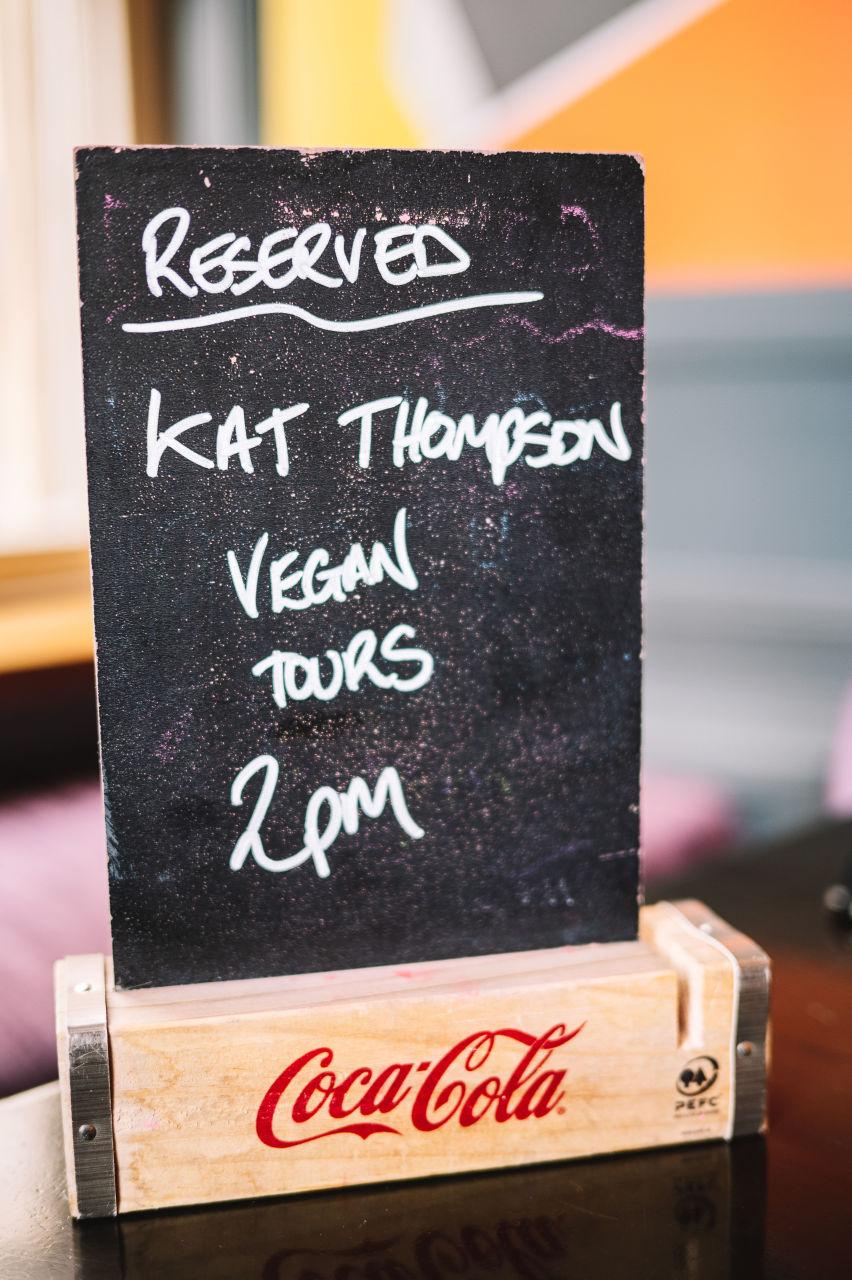 RESERVED
KAT THOMPSON
VEGAN
TOURS
2pm
Coca-Cola
PEFC